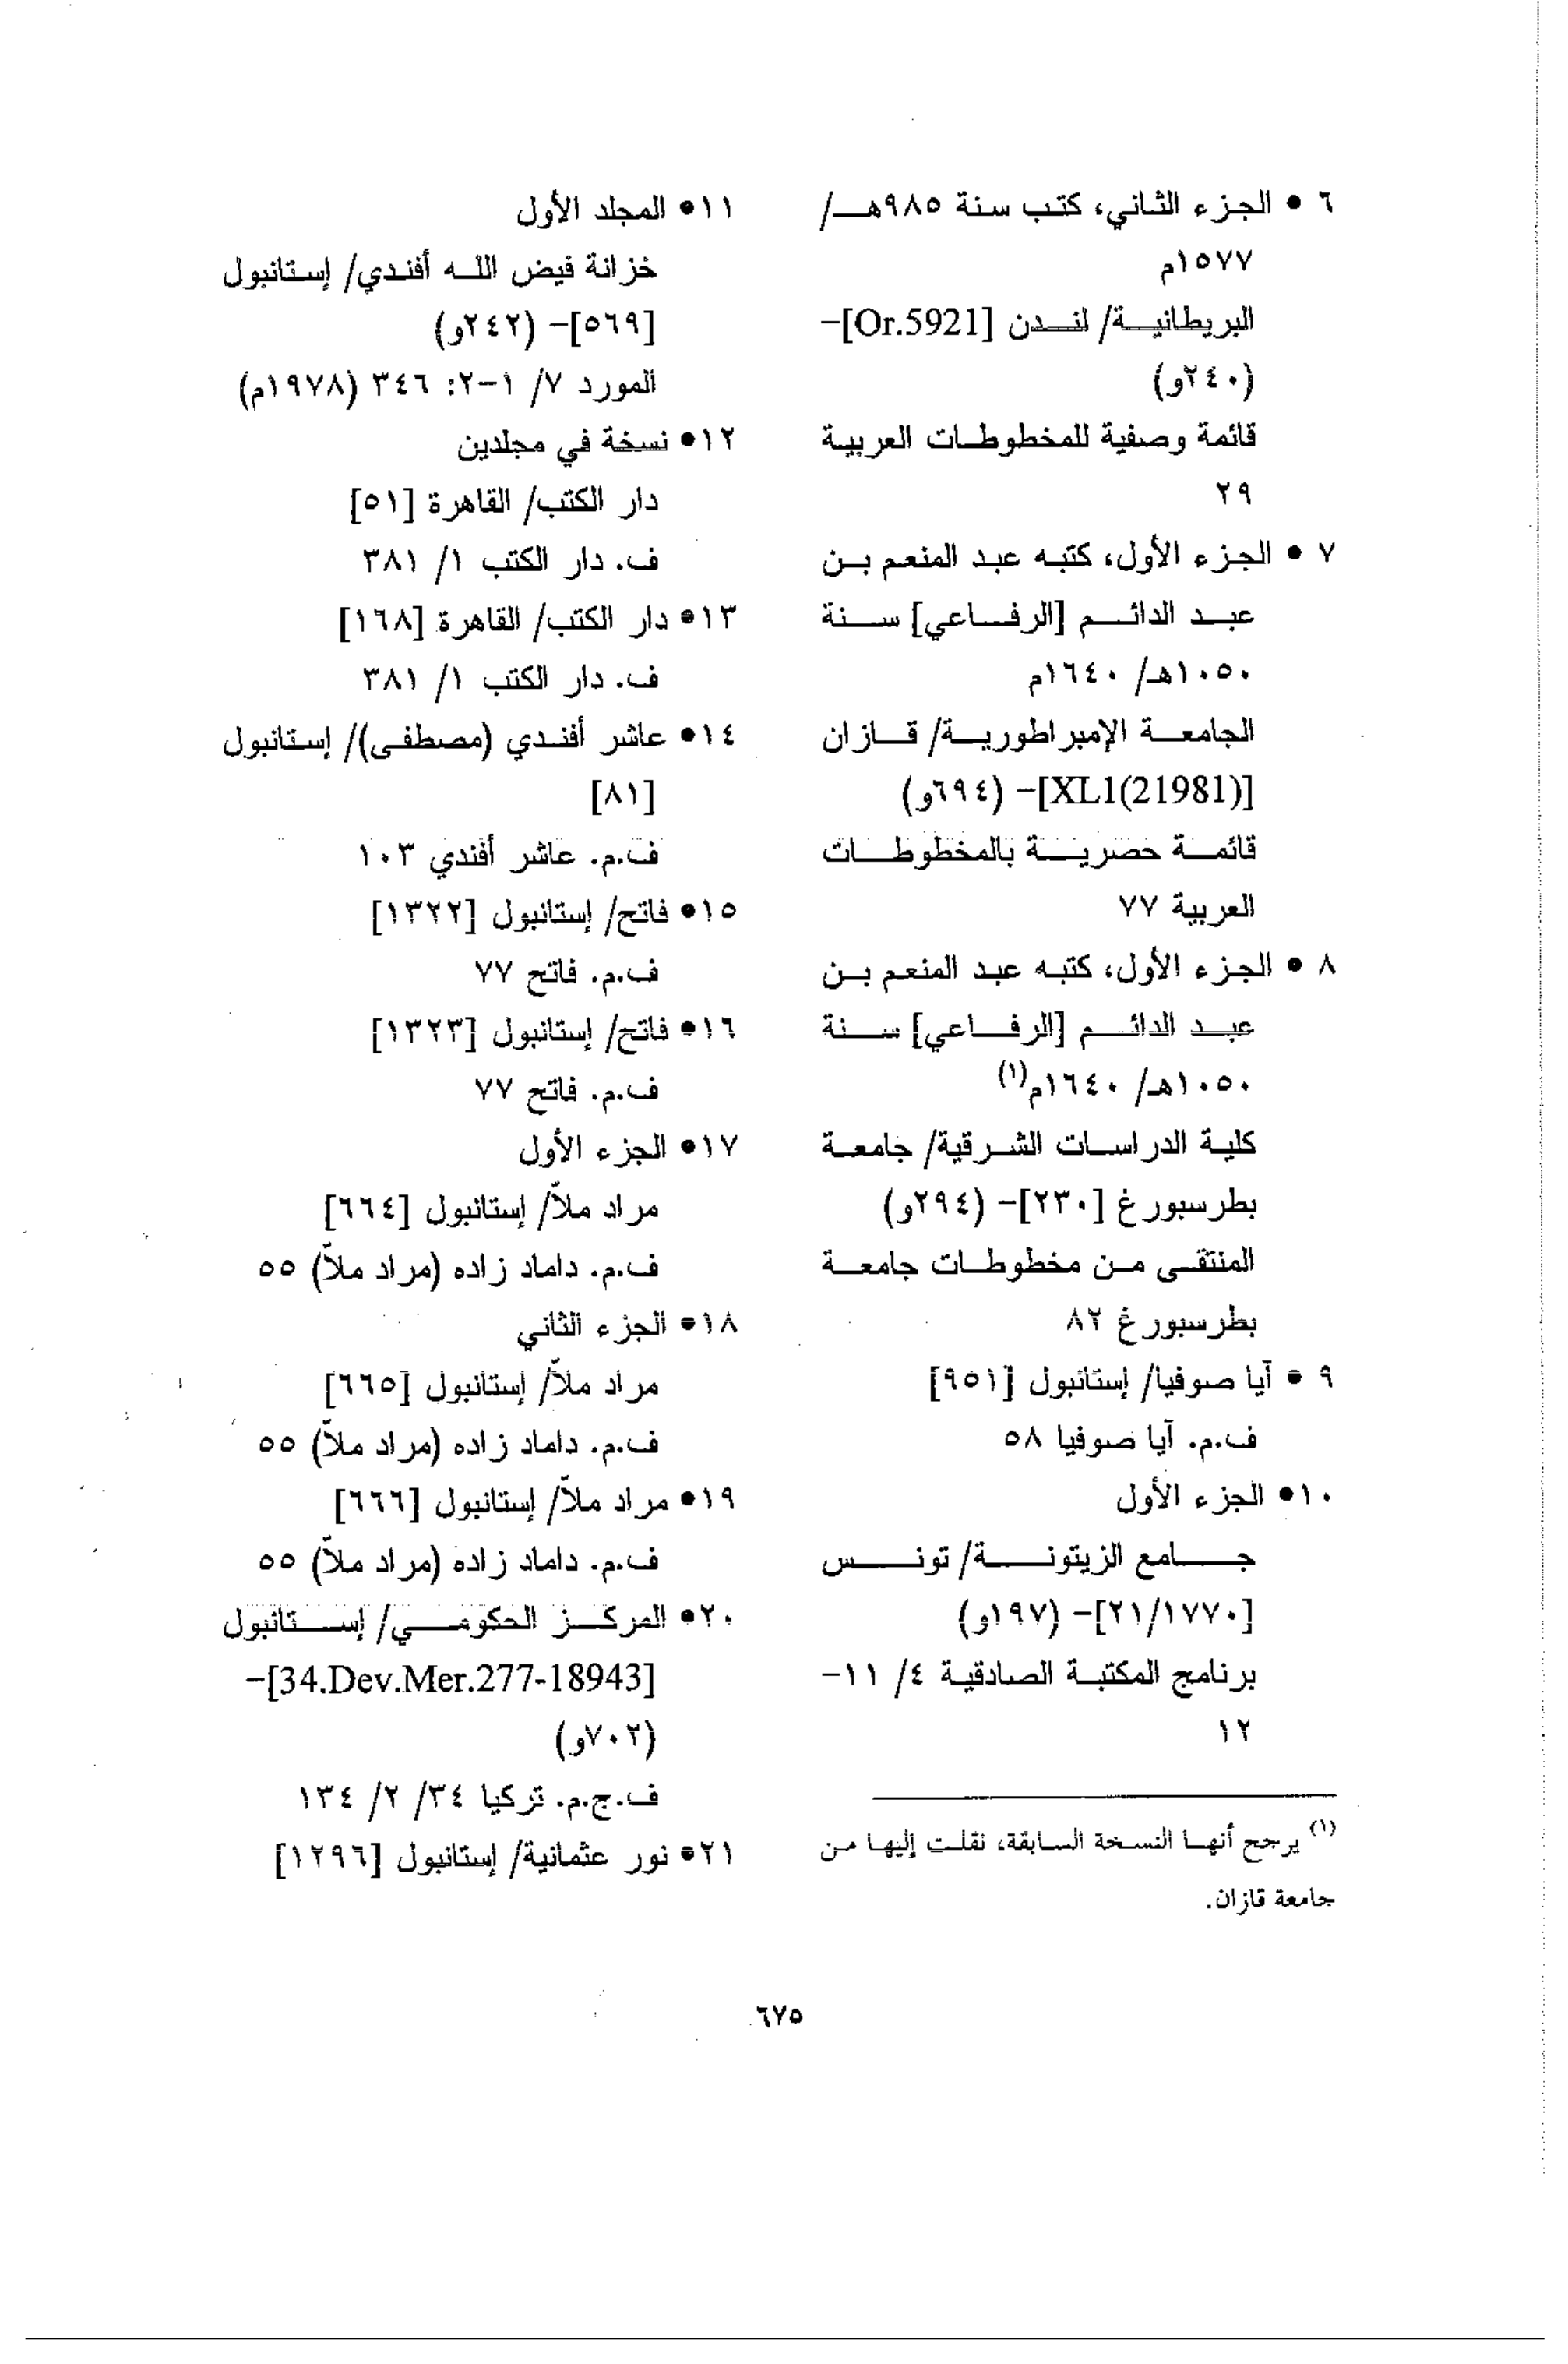 ٦ • الجزء الثاني، كتب سنة ٩٨٥هـ/
١٥٧٧م
البريطانية/ لندن [Or.5921]-
(٢٤٠و)
قائمة وصفية للمخطوطات العربية
٢٩
٧ • الجزء الأول، كتبه عبد المنعم بن
عبد الدائم [الرفاعي] سنة
١٠٥٠هـ/ ١٦٤٠م
الجامعة الإمبراطورية/ قازان
[XL1(21981)]- (٦٩٤و)
قائمة حصرية بالمخطوطات
العربية ٧٧
٨ • الجزء الأول، كتبه عبد المنعم بن
عبد الدائم [الرفاعي] سنة
١٠٥٠هـ/ ١٦٤٠م(١)
كلية الدراسات الشرقية/ جامعة
بطرسبورغ [٢٣٠]- (٢٩٤و)
المنتقى من مخطوطات جامعة
بطرسبورغ ٨٢
٩ • آيا صوفيا/ إستانبول [٩٥١]
ف.م. آيا صوفيا ٥٨
١٠• الجزء الأول
جامع الزيتونة/ تونس
[٢١/١٧٧٠]- (١٩٧و)
برنامج المكتبة الصادقية ٤/ ١١-
١٢
(١) يرجح أنها النسخة السابقة، نقلت إليها من
جامعة قازان.
١١• المجلد الأول
خزانة فيض الله أفندي/ إستانبول
[٥٦٩]- (٢٤٢و)
المورد ٧/ ١-٢: ٣٤٦ (١٩٧٨م)
١٢• نسخة في مجلدين
دار الكتب/ القاهرة [٥١]
ف. دار الكتب ١/ ٣٨١
١٣• دار الكتب/ القاهرة [١٦٨]
ف. دار الكتب ١/ ٣٨١
١٤• عاشر أفندي (مصطفى)/ إستانبول
[٨١]
ف.م. عاشر أفندي ١٠٣
١٥• فاتح/ إستانبول [١٣٢٢]
ف.م. فاتح ٧٧
١٦• فاتح/ إستانبول [١٣٢٣]
ف.م. فاتح ٧٧
١٧• الجزء الأول
مراد ملاّ/ إستانبول [٦٦٤]
ف.م. داماد زاده (مراد ملاّ) ٥٥
١٨• الجزء الثاني
مراد ملاّ/ إستانبول [٦٦٥]
ف.م. داماد زاده (مراد ملاّ) ٥٥
١٩• مراد ملاّ/ إستانبول [٦٦٦]
ف.م. داماد زاده (مراد ملاّ) ٥٥
٢٠• المركز الحكومي/ إستانبول
[34.Dev.Mer.277-18943]-
(٧٠٢و)
ف.ج.م. تركيا ٣٤/ ٢/ ١٣٤
٢١• نور عثمانية/ إستانبول [١٢٩٦]
٦٧٥